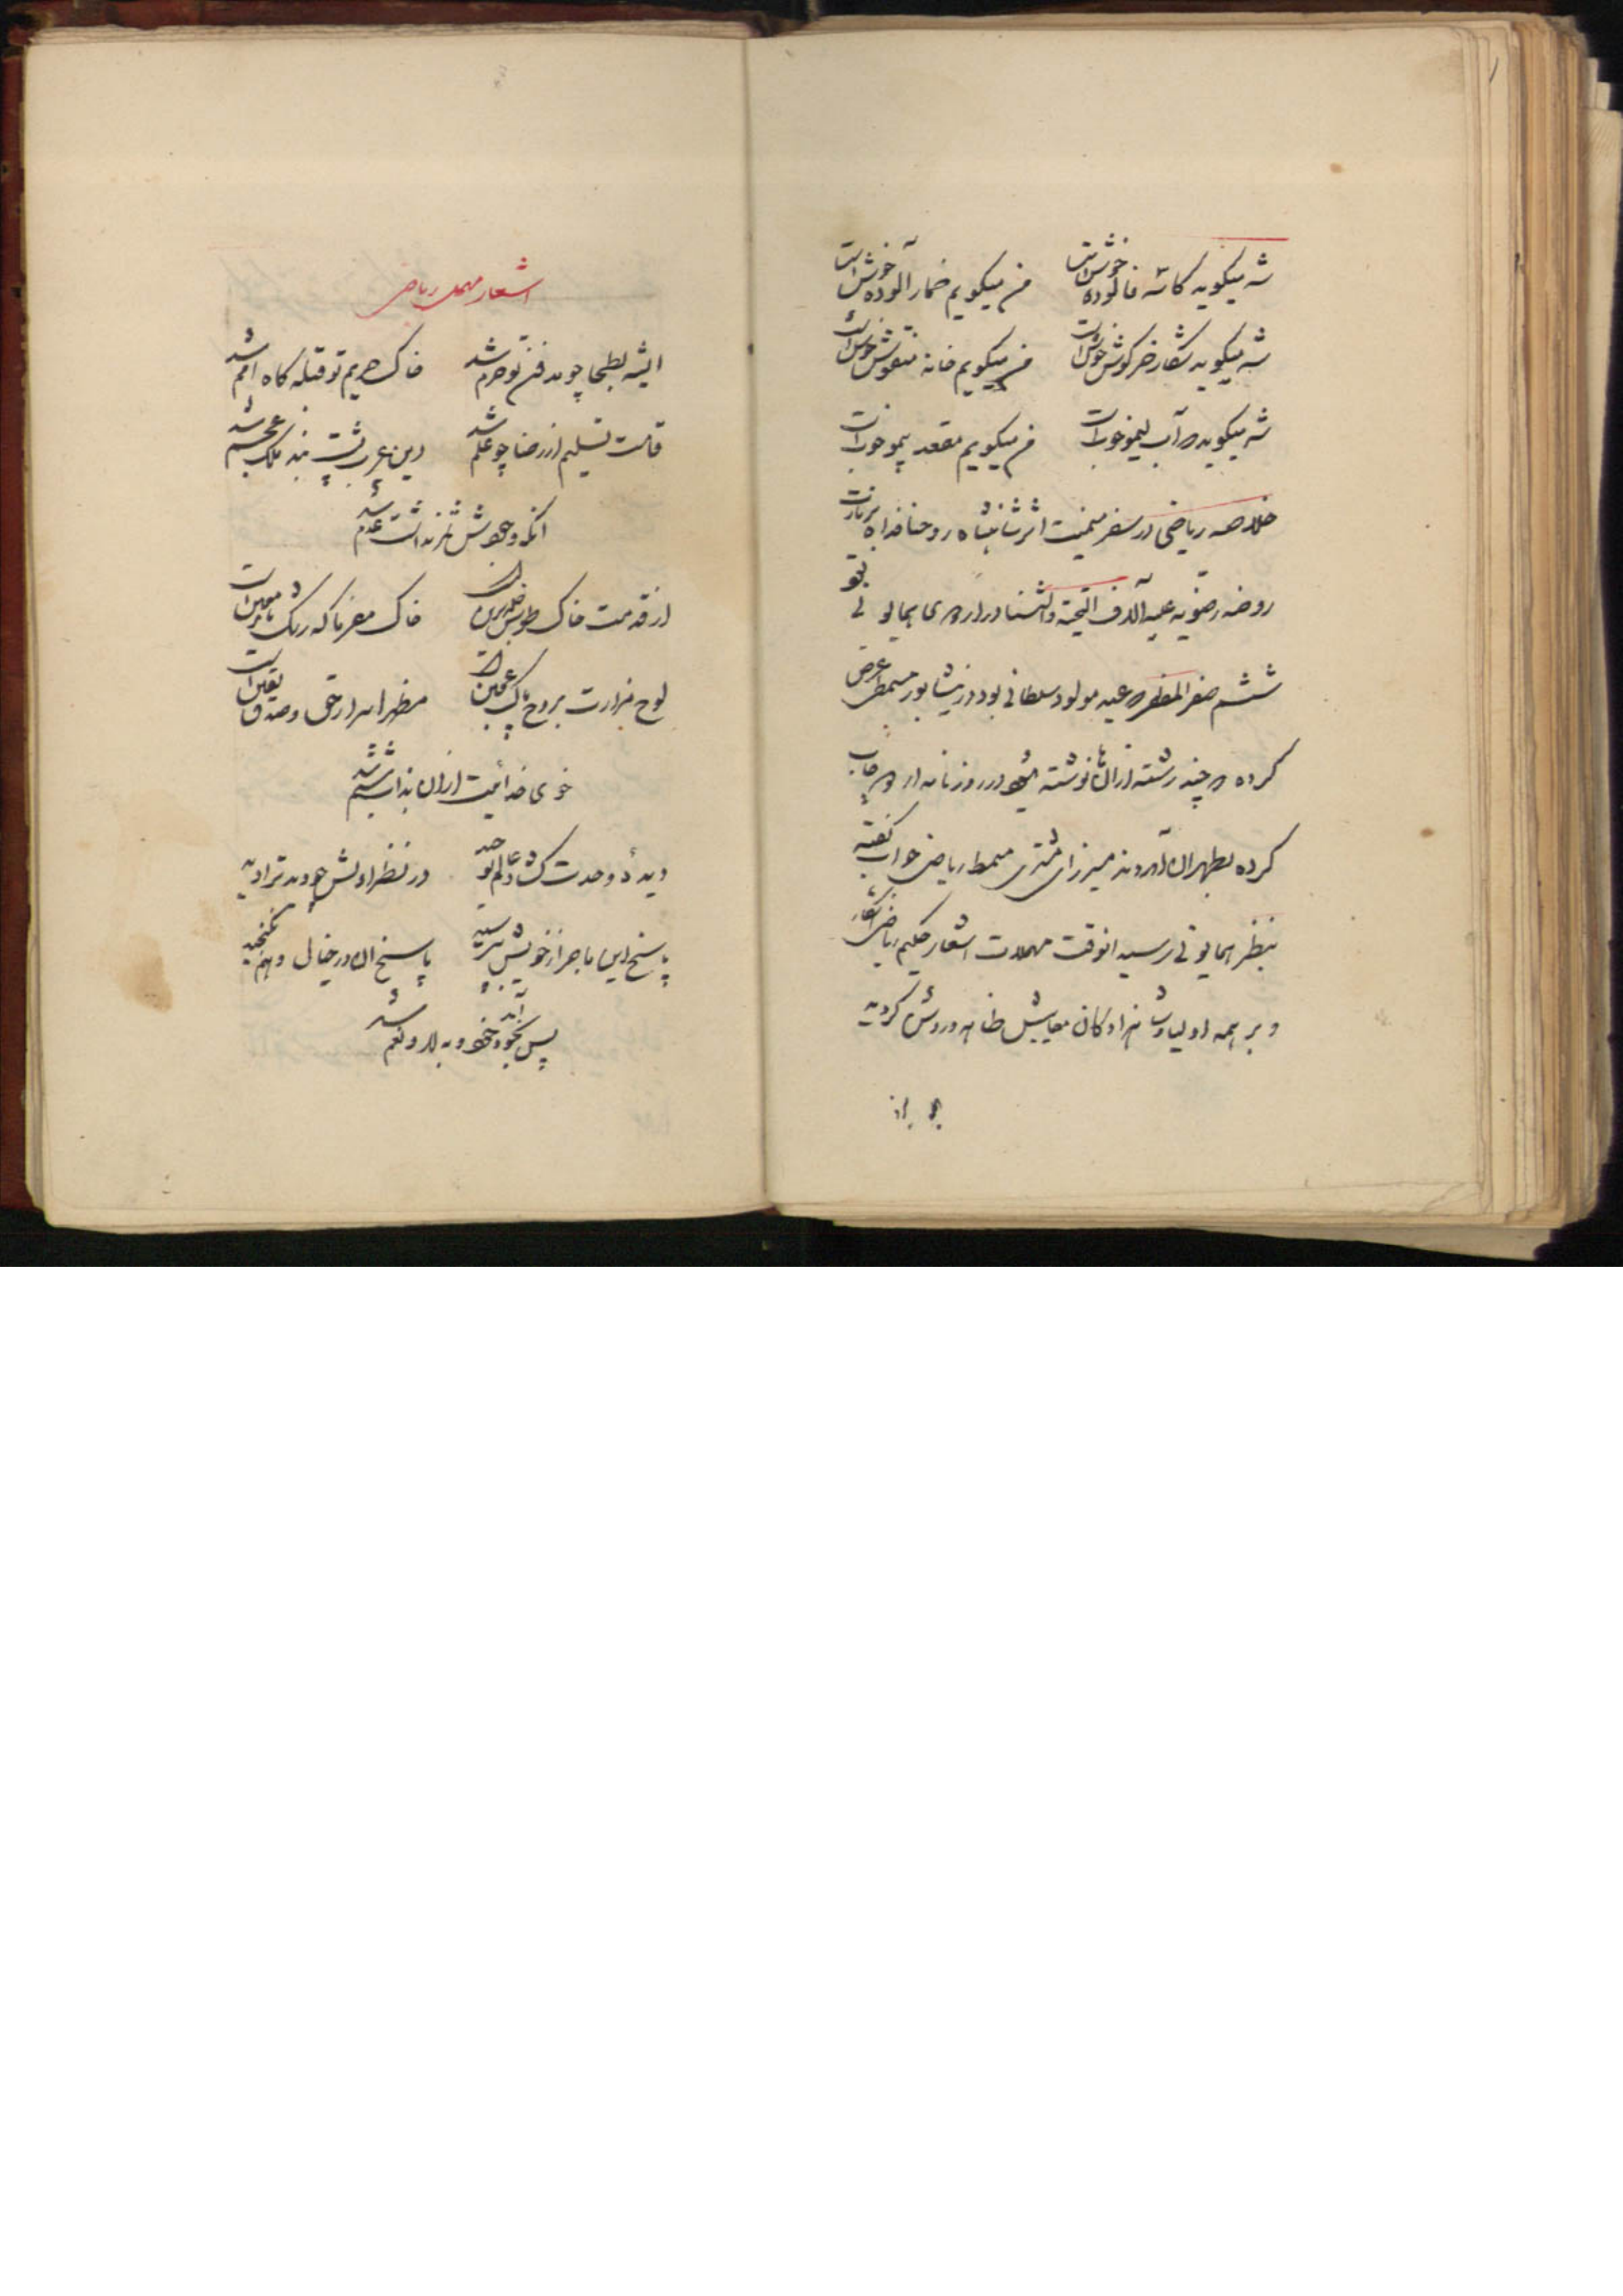 شه میگوید کاسه فالوده خوش است من میگویم خمار آلوده خوش است
شه میگوید شکار خرگوش خوش است من میگویم خانه منقوش خوش است
شه میگوید آب لیمو خوب است من میگویم مقعد بیمو خوب است
خلاصه ریاضی در سفر میمنت اثر شاهنشاه روحنا فداه بزیارت
روضه رضویه علیه آلاف التحیة والثنا در اردوی همایونی بود
ششم صفر المظفر عید مولود سلطانی بود در نیشابور مسمط عرض
کرده چند رشته از آن نوشته در روزنامه اردو چاپ
کرده بطهران آوردند میرزای مشتری مسمط ریاضی جواب گفته
بنظر همایونی رسید انوقت مهملات اشعار حکیم ریاضی آشکار
و بر همه اولیا وشاهزادگان معایبش ظاهر و روشن گردید
اشعار مهمل ریاضی
ایشه بطحا چو مدفن تو حرم شد خاک حریم تو قبله گاه امم شد
قامت تسلیم از رضا چو علم شد دین عرب پشت بند ملک عجم شد
آنکه وجودش نداشت عدم شد
از قدمت خاک طوس خلد برین است خاک مگر با که رنگ معین است
لوح مزارت بروح پاک عجین است مظهر اسرار حق و صدق یقین است
خوی خدائیت از ان شد
دیده وحدت گشاد در نظر اولش جود ترا دید
پاسخ این ماجرا ز خویش بپرسید پاسخ ان در خیال و وهم نگنجید
پس بخود آمد